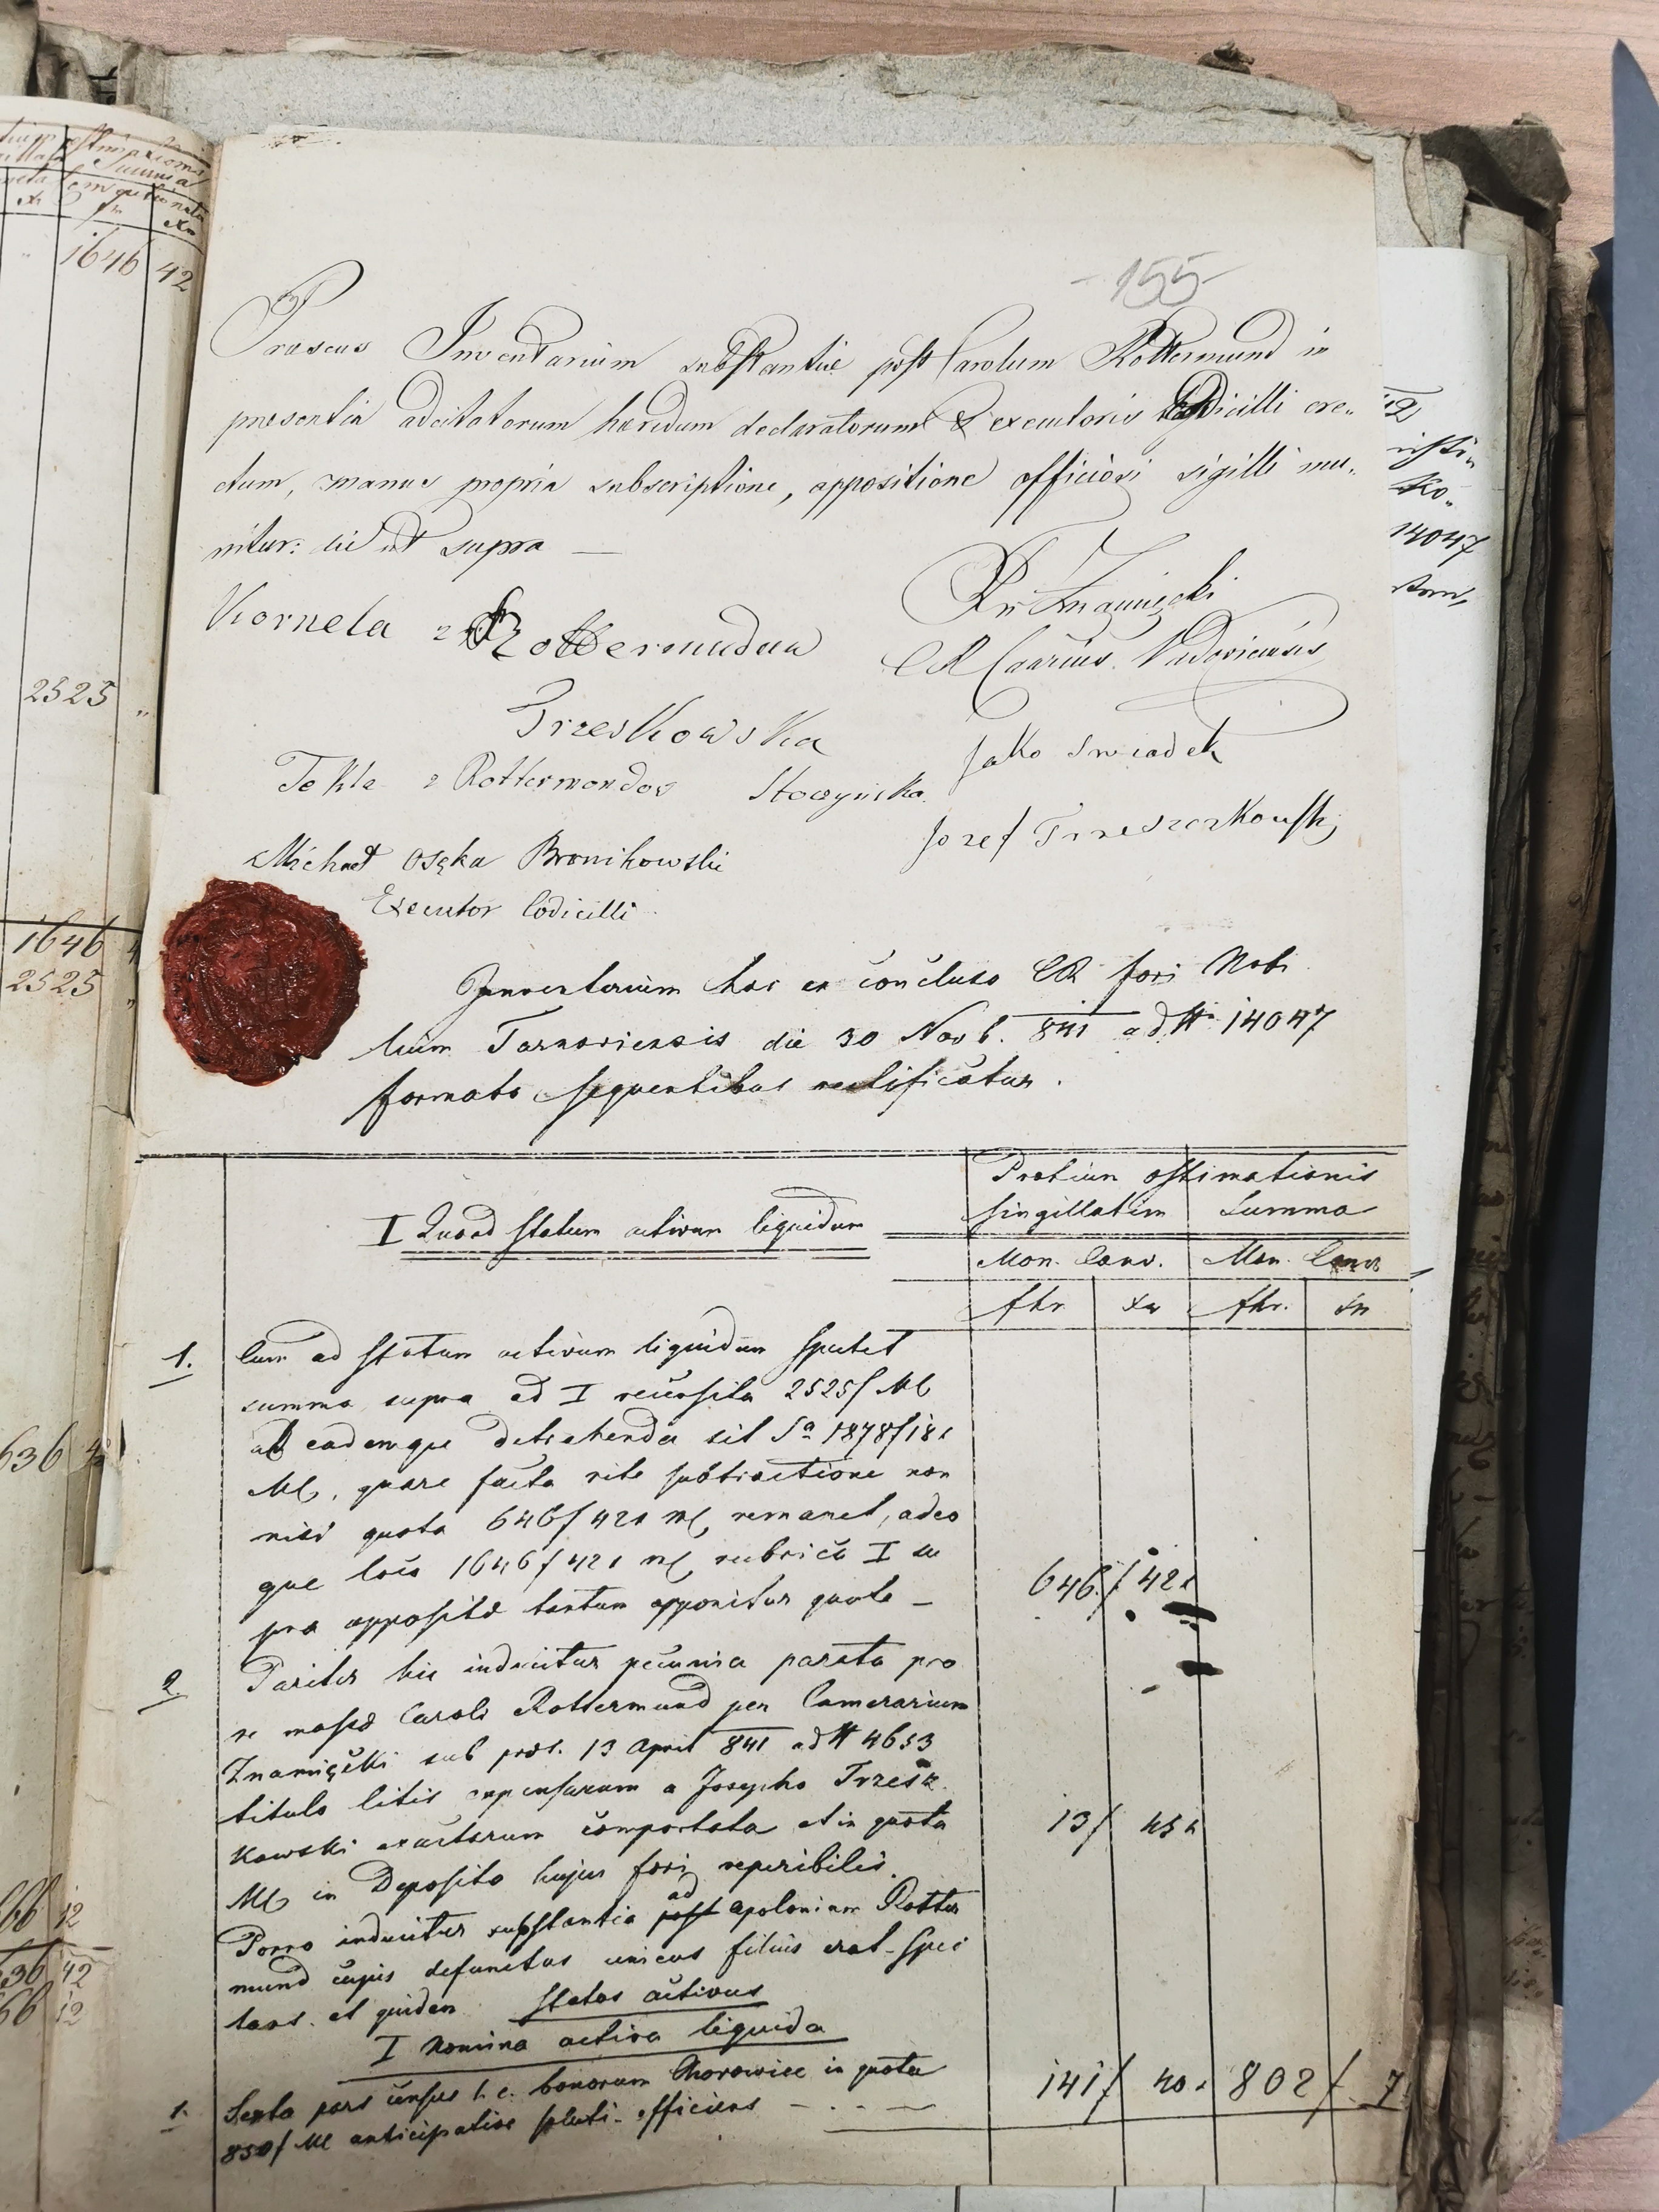 1646 42
2525 "
1646
2525 "
636 42
12
42
12
-155-
Præsens Inventarium substantiæ post Carolum Rottermund in
præsentia adcitatorum hæredum declaratorum & executoris Codicilli ere„
ctum, manus propria subscriptione, appositione officiosi sigilli mu„
nitur: die ut supra —
Kornela z Rottermudun
Brzeskowska
Tekla z Rottermondow Stoczyńska.
Michał Osęka Bronikowski
Executor Codicilli
Znamięcki
CR Cam̃rius. Vadoviensis
Jako Swiadek
Jozef Trzeszczkowski
14047
Inventarium hoc ex concluso CR fori Nobi
lium Tarnoviensis die 30 Novb. 841 ad N 14047
formato sequentibus rectificatur.
I Quoad Statum activum liquidum
Pretium æstimationis
singillatim Summa
Mon. Conv. Mon. Conv
fhr. xr fhr. xr
1. Cum ad Statum activum liquidum spectet
summa supra ad I recensita 2525f MC
ab eademque detrahenda sit Sa 1878f18x
MC, quare facta rite subtractione non
nisi quota 646f 42x MC, remanet, adeo
que loco 1646f 42x MC rubrica I su
pra apposita tantum apponitur quota — 646f 42x
2. Pariter hic inducitur pecunia parata pro
re massæ Caroli Rottermund per Camerarium
Znamięcki sub præs. 13 April 841 ad N 4653
titulo litis expensarum a Josepho Trzesz
kowski exactarum comportata et in quota 13f 45x
MC in Deposito hujus fori reperibilis.
Porro inducitur substantia post ad Apoloniam Rotter
mund cujus defunctus unicus filius erat spec
tans. et quidem Status activus
I Nomina activa liquida
1. Sexta pars census h.e. bonorum Chorowice in quota
850f MC anticipative soluti efficiens — 141f 40x 802f 7